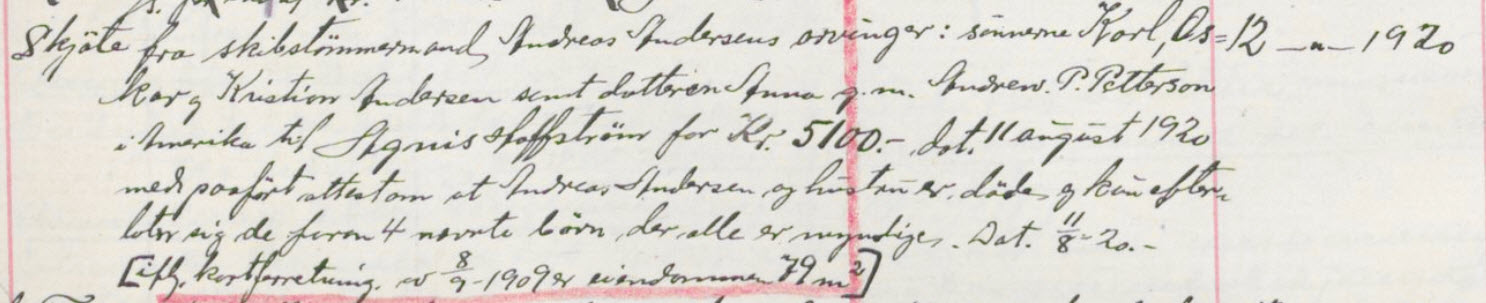 Skjöte fra skibstömmermand Andreas Andersens arvinger: sönnerne Karl, Os= 12 —„— 1920
kar og Kristian Andersen samt datteren Anna g. m. Andrew. P. Petterson
i Amerika til Agnis Staffström for Kr. 5100.- dat. 11 august 1920
med paafört attest om at Andreas Andersen og hustru er döde og kun efter-
later sig de foran 4 nevnte börn der alle er myndige. Dat. 11/8-20.-
[ifg. kartforretning. av 8/9-1909 er eiendommen 79 m²]